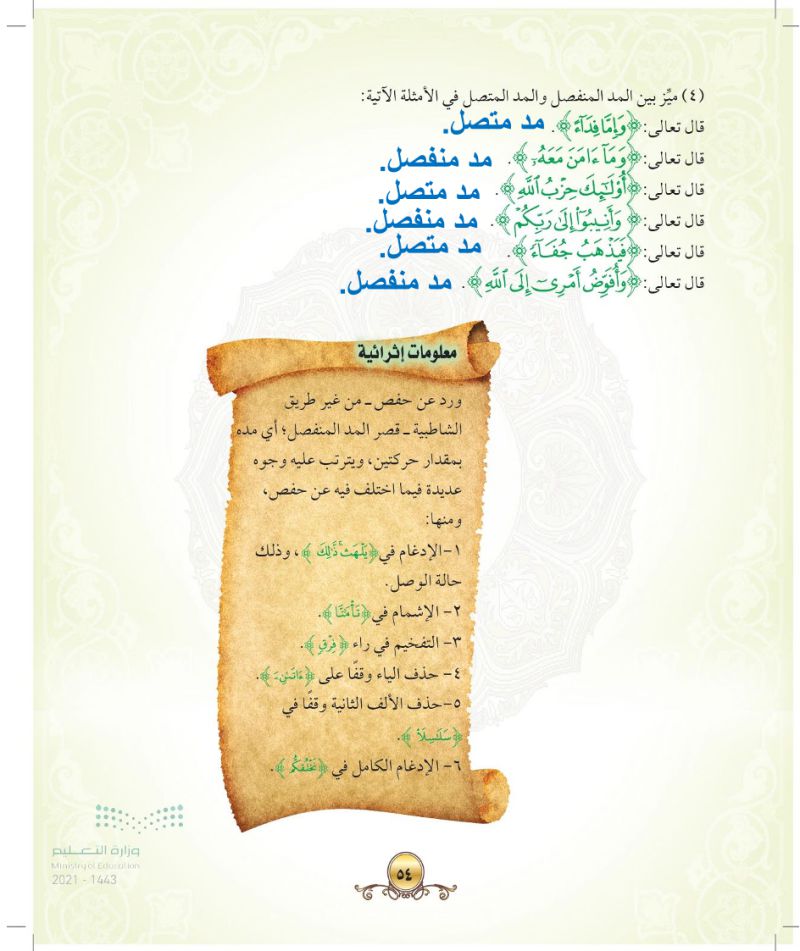 (٤) ميِّز بين المد المنفصل والمد المتصل في الأمثلة الآتية:
قال تعالى: ﴿وَإِمَّا فِدَآءً﴾. مد متصل.
قال تعالى: ﴿وَمَآ ءَامَنَ مَعَهُۥٓ﴾. مد منفصل.
قال تعالى: ﴿أُوْلَٰٓئِكَ حِزْبُ ٱللَّهِ﴾. مد متصل.
قال تعالى: ﴿وَأَنِيبُوٓاْ إِلَىٰ رَبِّكُمْ﴾. مد منفصل.
قال تعالى: ﴿فَيَذْهَبُ جُفَآءً﴾. مد متصل.
قال تعالى: ﴿وَأُفَوِّضُ أَمْرِىٓ إِلَى ٱللَّهِ﴾. مد منفصل.
معلومات إثرائية
ورد عن حفص ـ من غير طريق
الشاطبية ـ قصر المد المنفصل؛ أي مده
بمقدار حركتين، ويترتب عليه وجوه
عديدة فيما اختلف فيه عن حفص،
ومنها:
١- الإدغام في ﴿يَلْهَث ذَّٰلِكَ﴾، وذلك
حالة الوصل.
٢- الإشمام في ﴿تَأْمَ۫نَّا﴾.
٣- التفخيم في راء ﴿فِرْقٍ﴾.
٤- حذف الياء وقفًا على ﴿ءَاتَىٰنِۦَ﴾.
٥- حذف الألف الثانية وقفًا في
﴿سَلَٰسِلَاْ﴾.
٦- الإدغام الكامل في ﴿نَخْلُقكُّم﴾.
وزارة التعليم
Ministry of Education
2021 - 1443
٥٤